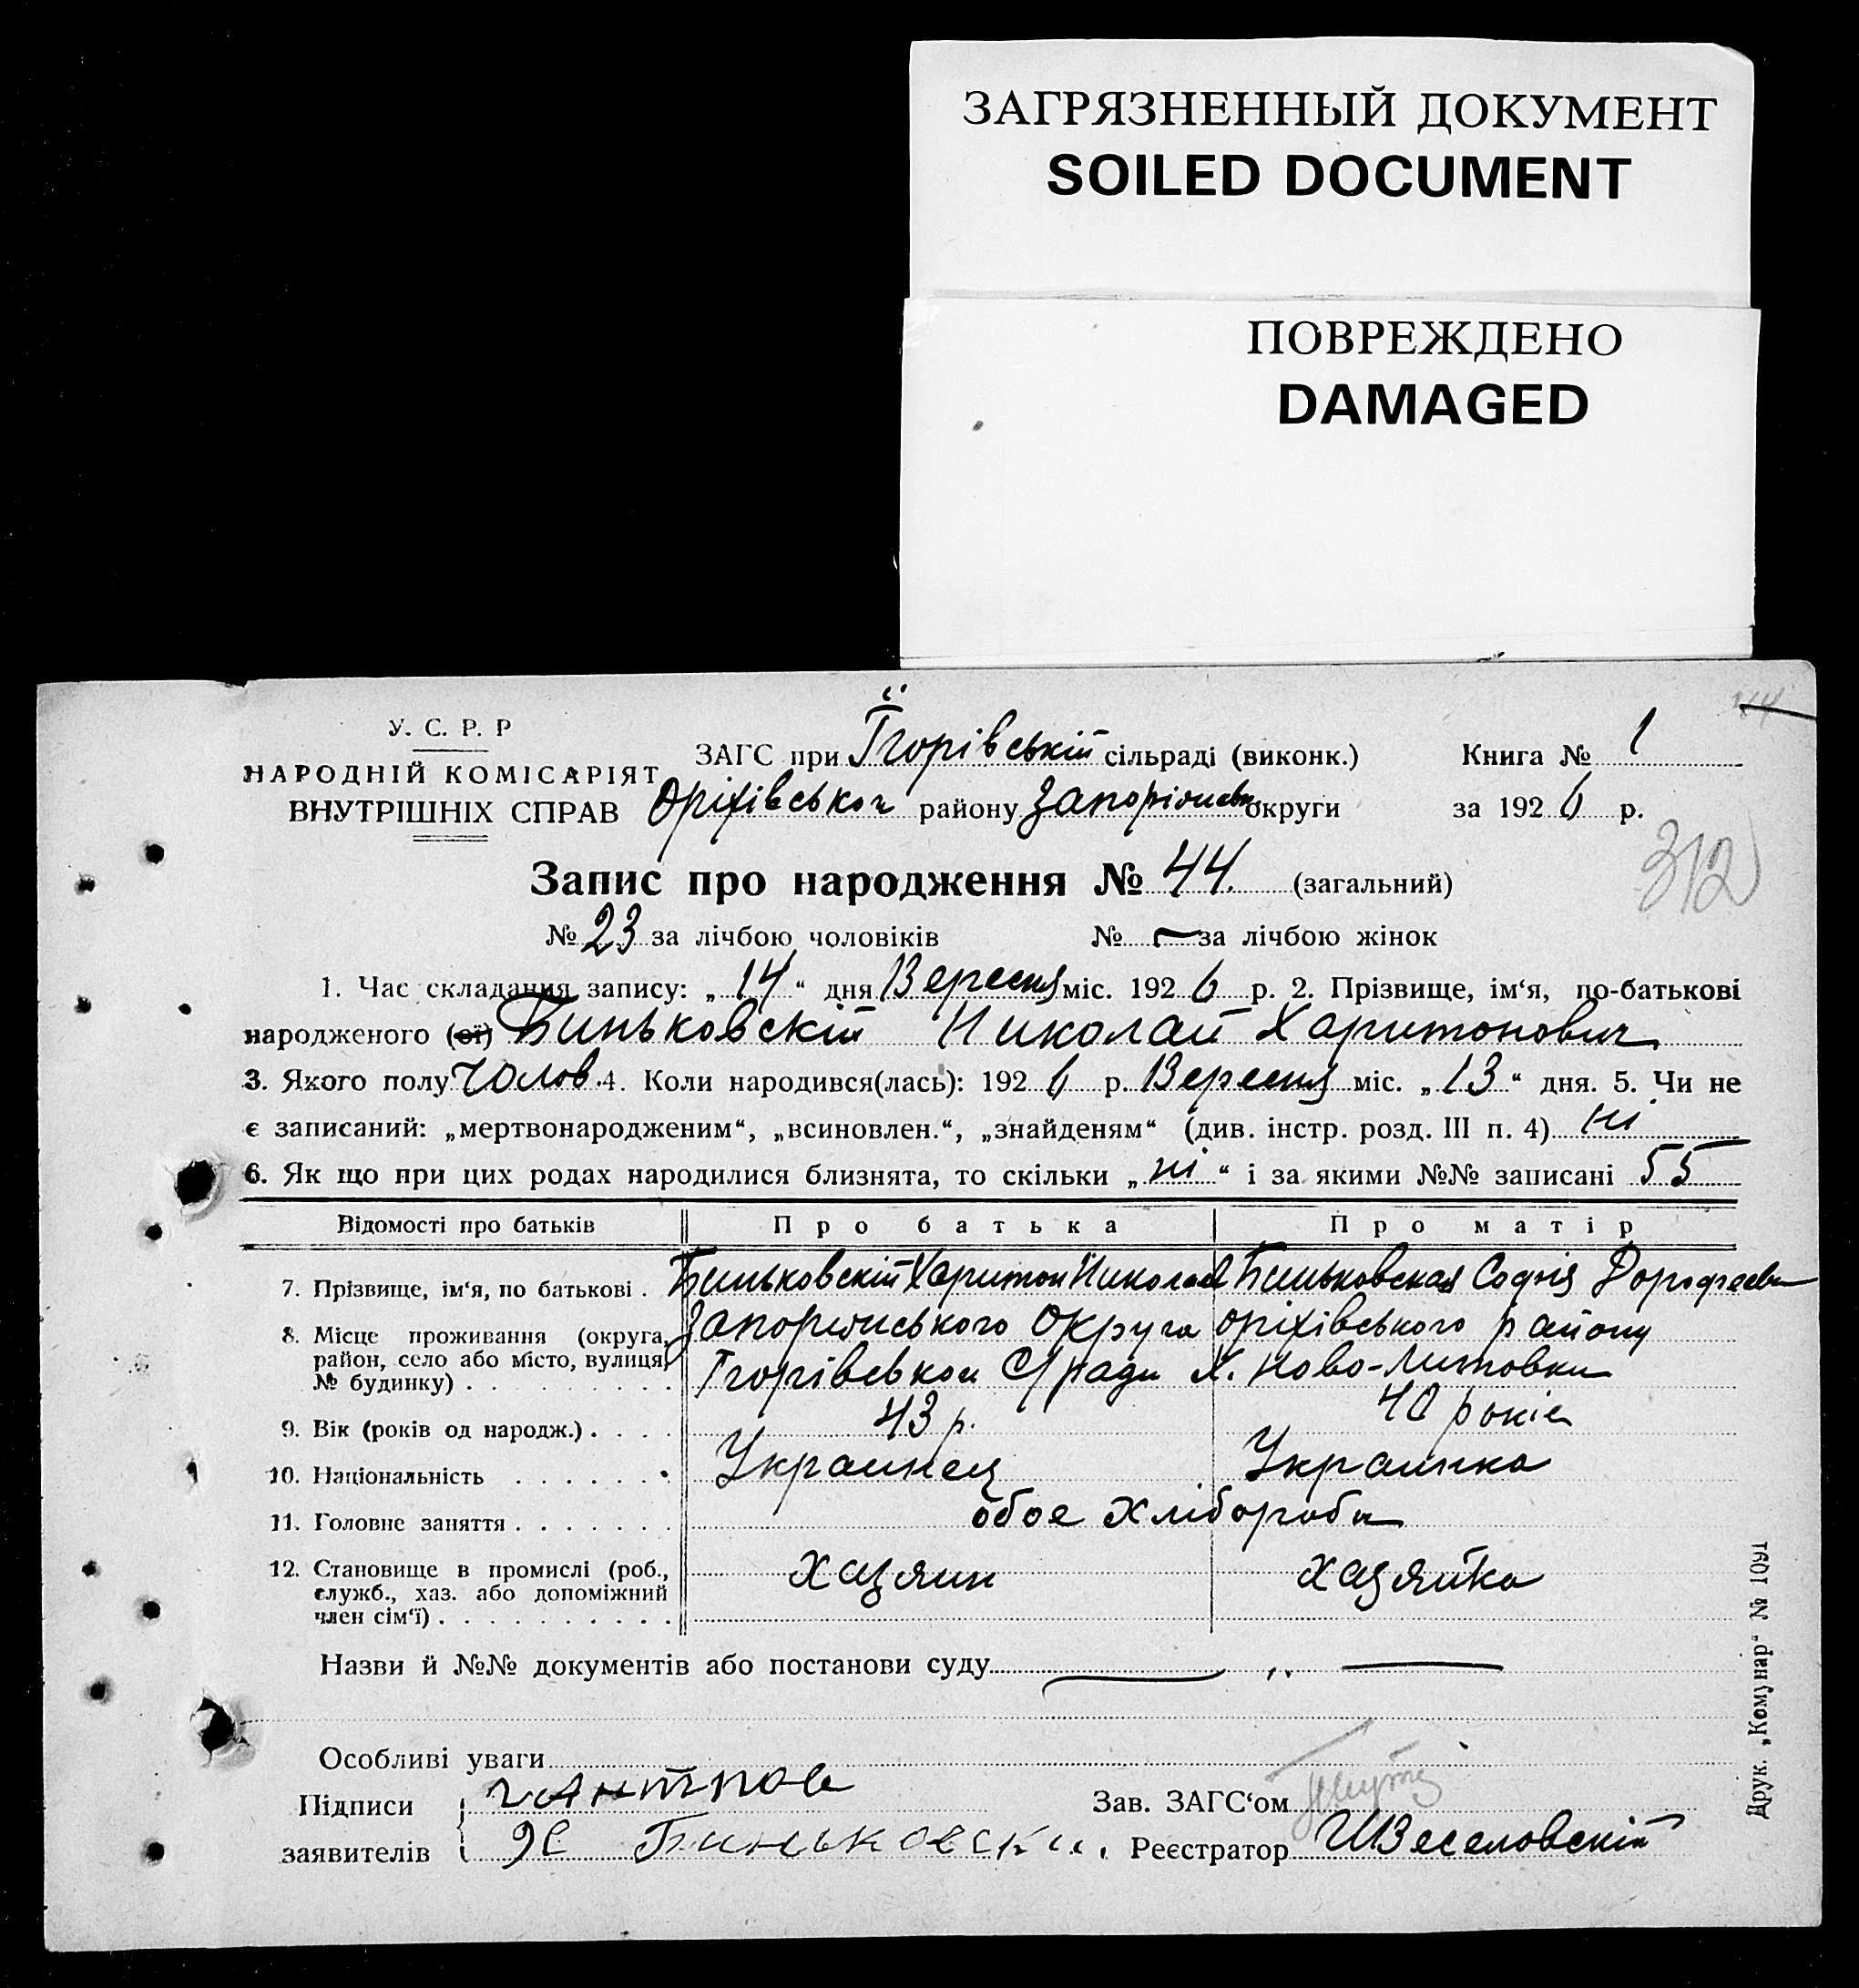 ЗАГРЯЗНЕННЫЙ ДОКУМЕНТ
SOILED DOCUMENT
ПОВРЕЖДЕНО
DAMAGED
У. С. Р. Р
НАРОДНІЙ КОМІСАРІЯТ
ВНУТРІШНІХ СПРАВ
ЗАГС при Їгорівській сільраді (виконк.) Книга № 1
Оріхівськои району округи за 1926 р.
312
Запис про народження № 44. (загальний)
№ 23 за лічбою чоловіків № — за лічбою жінок
1. Час складання запису: „ 14 “ дня Вересня міс. 1926 р. 2. Прізвище, ім‘я, по-батькові
народженого (ої) Биньковскій Николай Харитонович
3. Якого полу Чолов. 4. Коли народився(лась): 1926 р. Вересня міс. „ 13 “ дня. 5. Чи не
є записаний: „мертвонародженим“, „всиновлен.“, „знайденям“ (див. інстр. розд. III п. 4) ні
6. Як що при цих родах народилися близнята, то скільки „ ні “ і за якими №№ записані
Відомості про батьків Про батька Про матір
7. Прізвище, ім‘я, по батькові . Биньковскій Харитон Биньковская Софія
8. Місце проживання (округа, район, село або місто, вулиця, № будинку) . Округа Оріхівського району
Х. Ново-Литовки
9. Вік (років од народж.) . . . . 43 р. 40 років
10. Національність . . . . . . Украинец Украинка
11. Головне заняття . . . . . . . обое Хлібороби
12. Становище в промислі (роб., служб., хаз. або допоміжний член сім‘ї) . . . . . . . . . . Хазяин Хазяйка
Назви й №№ документів або постанови суду
Особливі уваги
Підписи заявителів
Биньковски
Зав. ЗАГС‘ом
Реєстратор Веселовскій
Друк. „Комунар“ № 1091